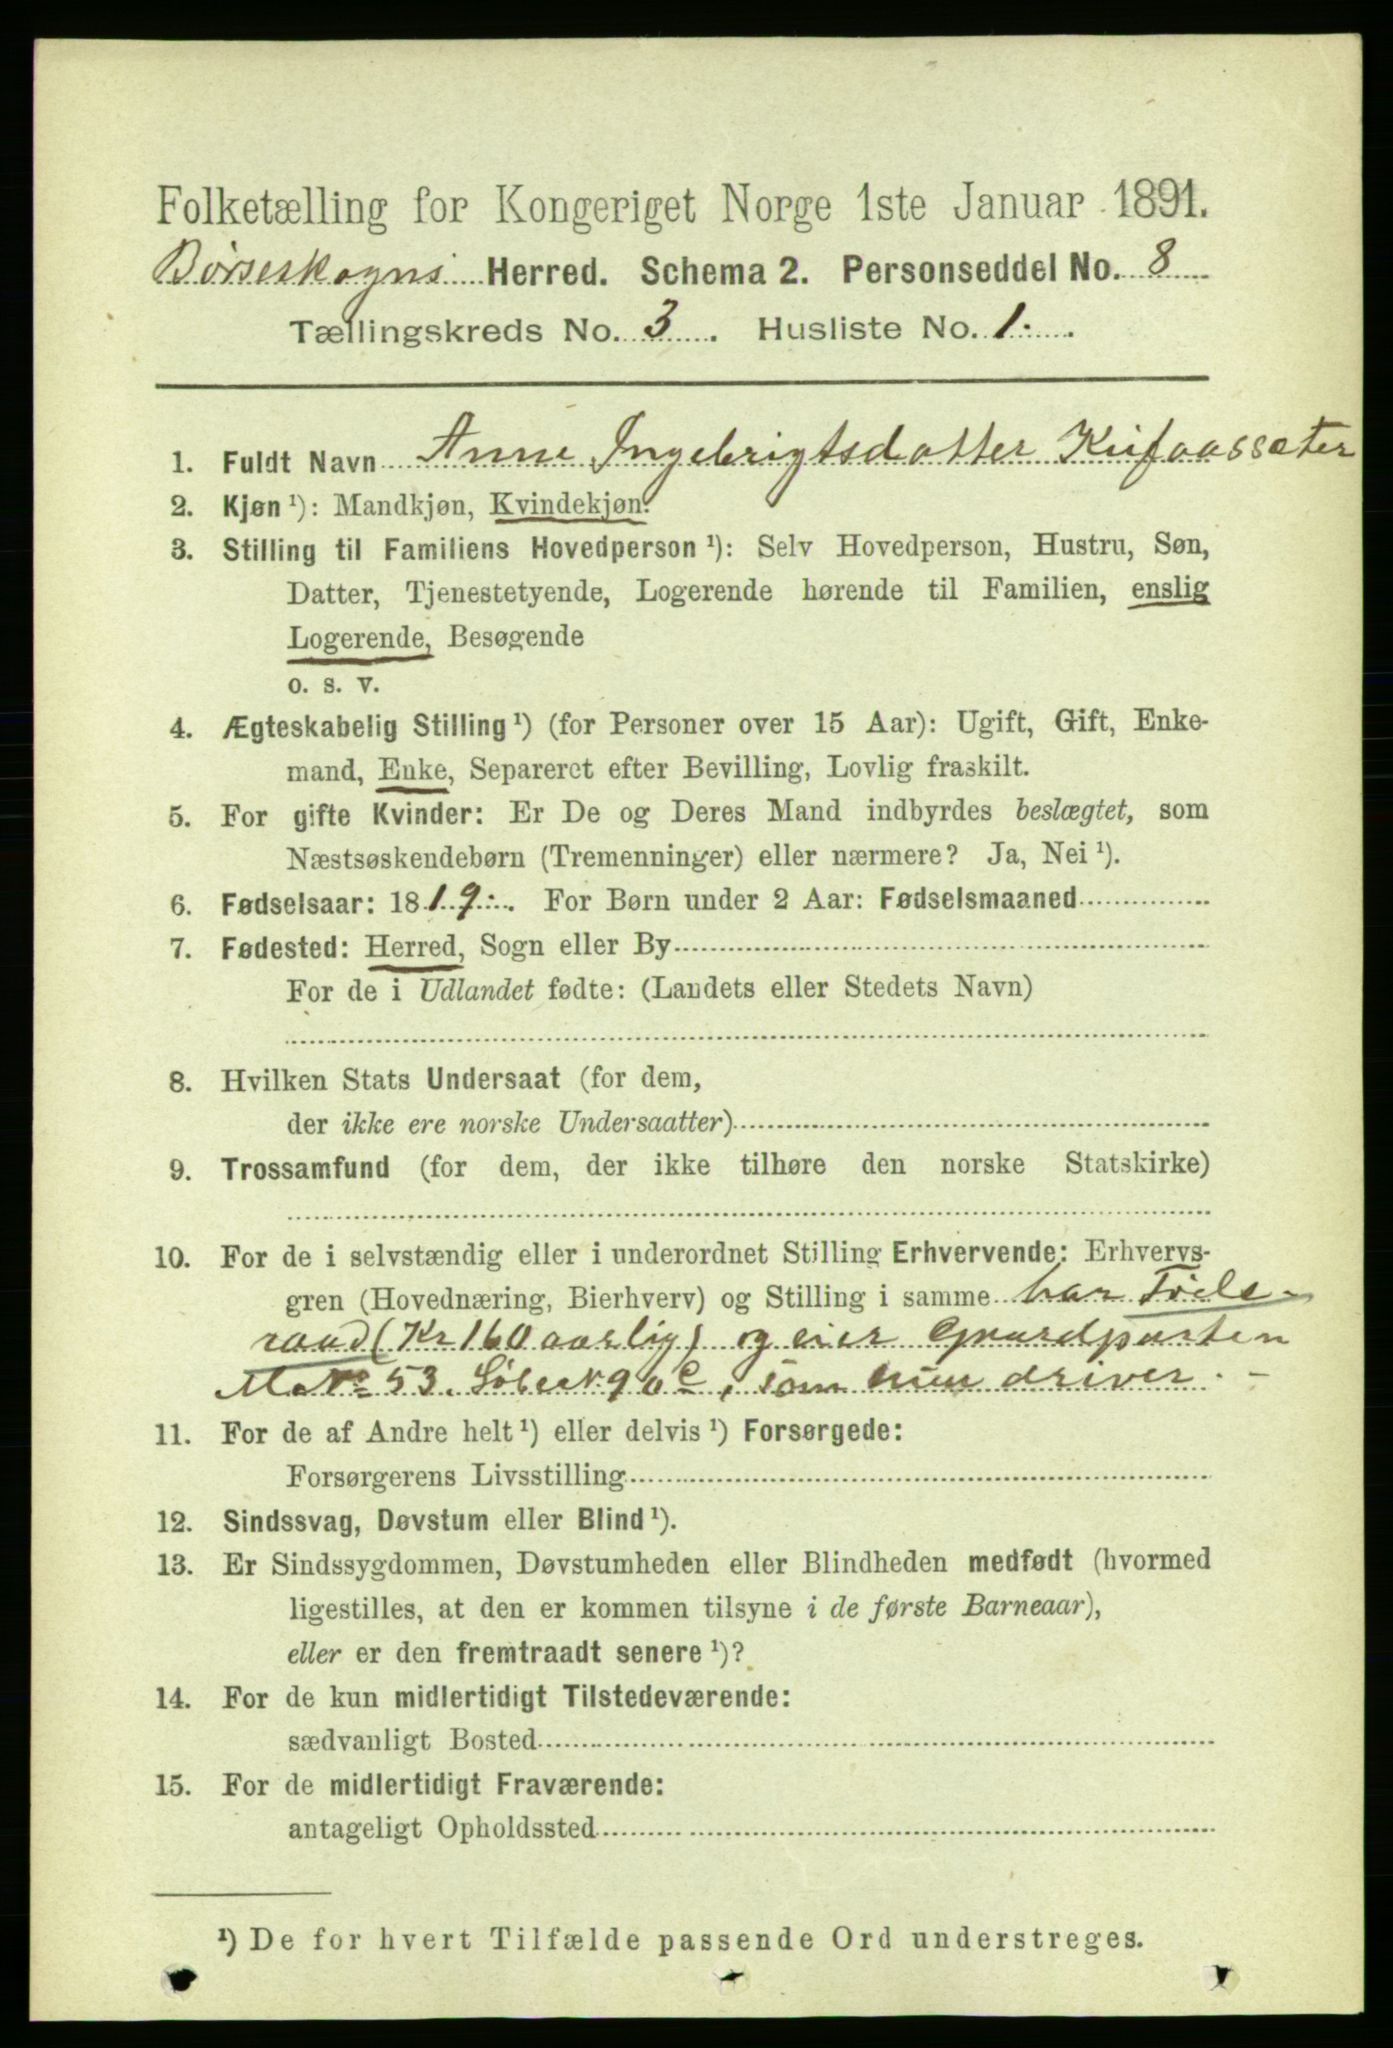 Folketælling for Kongeriget Norge 1ste Januar 1891.
Børseskogns Herred. Schema 2. Personseddel No. 8
Tællingskreds No. 3. Husliste No. 1.
1. Fuldt Navn Anne Ingebrigtsdatter
2. Kjøn ¹): Mandkjøn, Kvindekjøn.
3. Stilling til Familiens Hovedperson ¹): Selv Hovedperson, Hustru, Søn,
Datter, Tjenestetyende, Logerende hørende til Familien, enslig
Logerende, Besøgende
o. s. v.
4. Ægteskabelig Stilling ¹) (for Personer over 15 Aar): Ugift, Gift, Enke-
mand, Enke, Separeret efter Bevilling, Lovlig fraskilt.
5. For gifte Kvinder: Er De og Deres Mand indbyrdes beslægtet, som
Næstsøskendebørn (Tremenninger) eller nærmere? Ja, Nei ¹).
6. Fødselsaar: 1819. For Børn under 2 Aar: Fødselsmaaned
7. Fødested: Herred, Sogn eller By
For de i Udlandet fødte: (Landets eller Stedets Navn)
8. Hvilken Stats Undersaat (for dem,
der ikke ere norske Undersaatter)
9. Trossamfund (for dem, der ikke tilhøre den norske Statskirke)
10. For de i selvstændig eller i underordnet Stilling Erhvervende: Erhvervs-
gren (Hovednæring, Bierhverv) og Stilling i samme har Føde-
raad (Kr 160 aarlig) og eier Gaardparten
M. No 53. 90 c, som hun driver. -
11. For de af Andre helt ¹) eller delvis ¹) Forsørgede:
Forsørgerens Livsstilling
12. Sindssvag, Døvstum eller Blind ¹).
13. Er Sindssygdommen, Døvstumheden eller Blindheden medfødt (hvormed
ligestilles, at den er kommen tilsyne i de første Barneaar),
eller er den fremtraadt senere ¹)?
14. For de kun midlertidigt Tilstedeværende:
sædvanligt Bosted
15. For de midlertidigt Fraværende:
antageligt Opholdssted
¹) De for hvert Tilfælde passende Ord understreges.